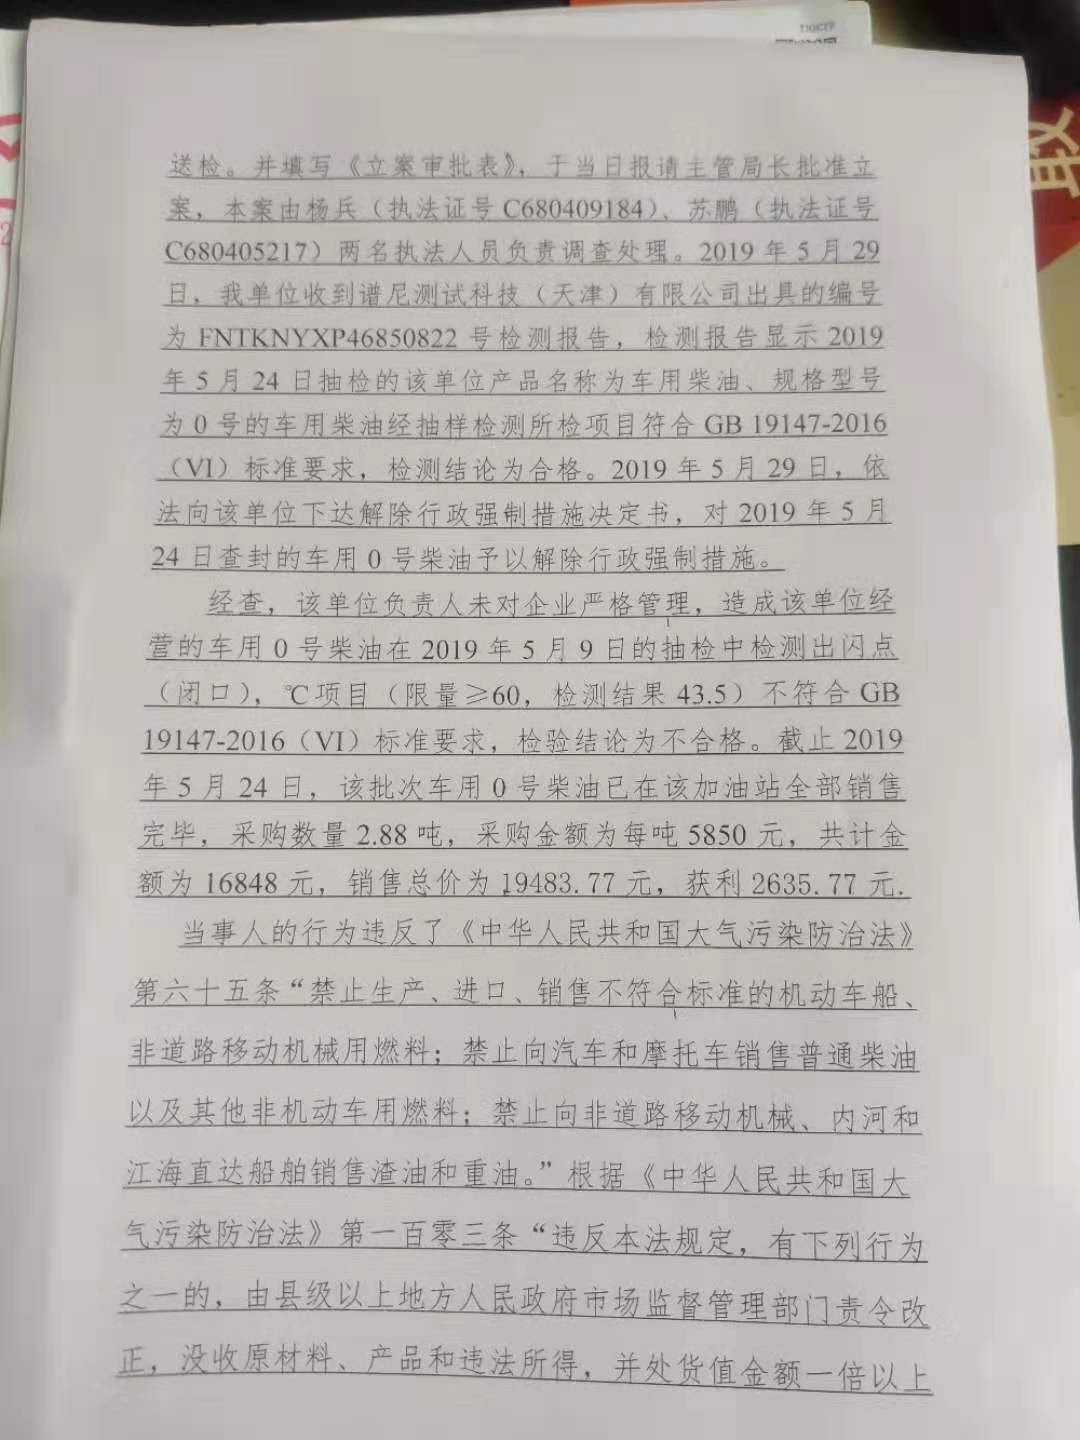 送检。并填写《立案审批表》，于当日报请主管局长批准立
案，本案由杨兵（执法证号 C680409184）、苏鹏（执法证号
C680405217）两名执法人员负责调查处理。2019 年 5 月 29
日，我单位收到谱尼测试科技（天津）有限公司出具的编号
为 FNTKNYXP46850822 号检测报告，检测报告显示 2019
年 5 月 24 日抽检的该单位产品名称为车用柴油、规格型号
为 0 号的车用柴油经抽样检测所检项目符合 GB 19147-2016
（VI）标准要求，检测结论为合格。2019 年 5 月 29 日，依
法向该单位下达解除行政强制措施决定书，对 2019 年 5 月
24 日查封的车用 0 号柴油予以解除行政强制措施。
经查，该单位负责人未对企业严格管理，造成该单位经
营的车用 0 号柴油在 2019 年 5 月 9 日的抽检中检测出闪点
（闭口），℃项目（限量≥60，检测结果 43.5）不符合 GB
19147-2016（VI）标准要求，检验结论为不合格。截止 2019
年 5 月 24 日，该批次车用 0 号柴油已在该加油站全部销售
完毕，采购数量 2.88 吨，采购金额为每吨 5850 元，共计金
额为 16848 元，销售总价为 19483.77 元，获利 2635.77 元.
当事人的行为违反了《中华人民共和国大气污染防治法》
第六十五条“禁止生产、进口、销售不符合标准的机动车船、
非道路移动机械用燃料；禁止向汽车和摩托车销售普通柴油
以及其他非机动车用燃料；禁止向非道路移动机械、内河和
江海直达船舶销售渣油和重油。”根据《中华人民共和国大
气污染防治法》第一百零三条“违反本法规定，有下列行为
之一的，由县级以上地方人民政府市场监督管理部门责令改
正，没收原材料、产品和违法所得，并处货值金额一倍以上